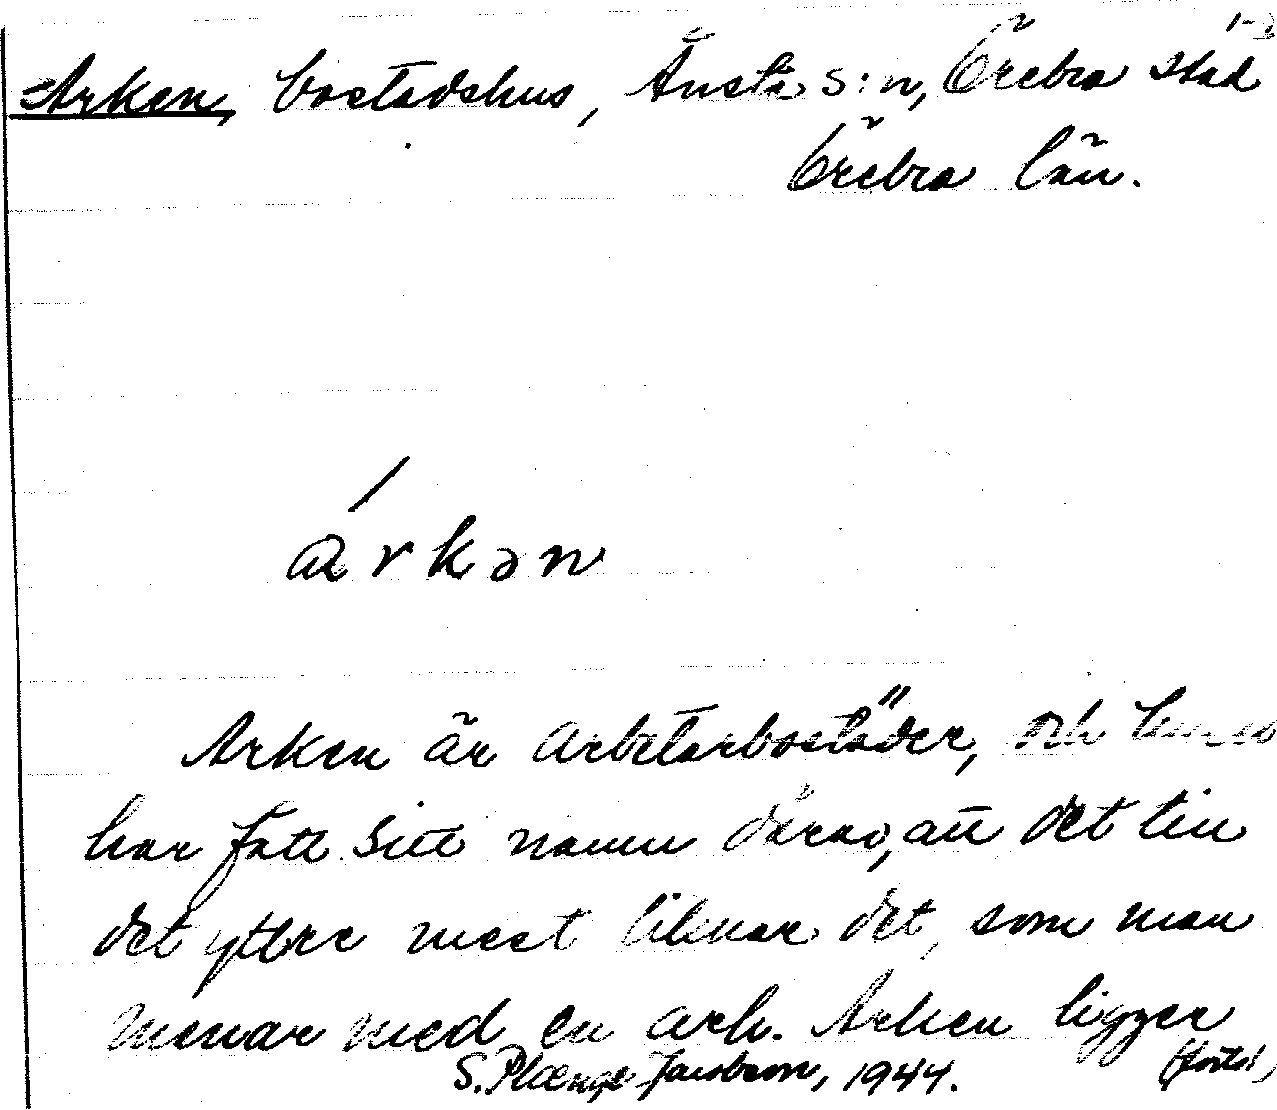 Arken, bostadshus, Ånsta s:n, Örebro stad
Örebro län.
árkən
Arken är arbetarbostäder, och huset
har fått sitt namn därav, att det till
det yttre mest liknar det, som man
menar med en ark. Arken ligger
S. Plænge Jacobson, 1944. (forts.)